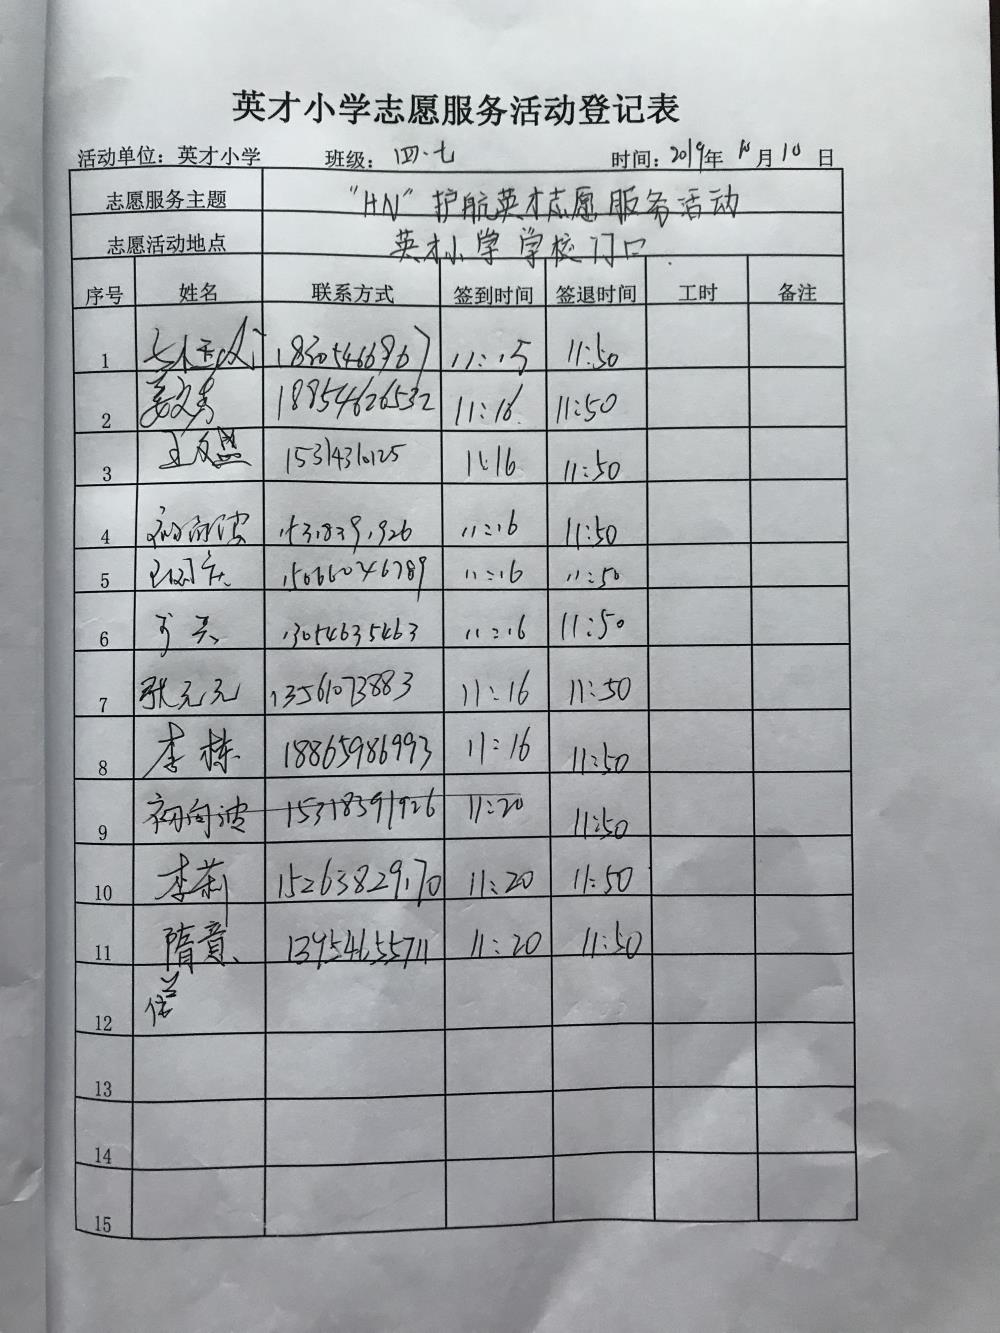 英才小学志愿服务活动登记表
活动单位：英才小学 班级：四.七 时间：2019年 10月 10 日
志愿服务主题 "HN"护航英才志愿服务活动
志愿活动地点 英才小学学校门口
序号 姓名 联系方式 签到时间 签退时间 工时 备注
1 11:15 11:50
2 18954626532 11:16 11:50
3 11:16 11:50
4 初向波 15318391926 11:16 11:50
5 15066046789 11:16 11:50
6 13054635463 11:16 11:50
7 张元元 13561073883 11:16 11:50
8 李栋 18865986993 11:16 11:50
9 初向波 15318391926 11:20 11:50
10 李莉 15263829170 11:20 11:50
11 隋意 13954655711 11:20 11:50
12
13
14
15